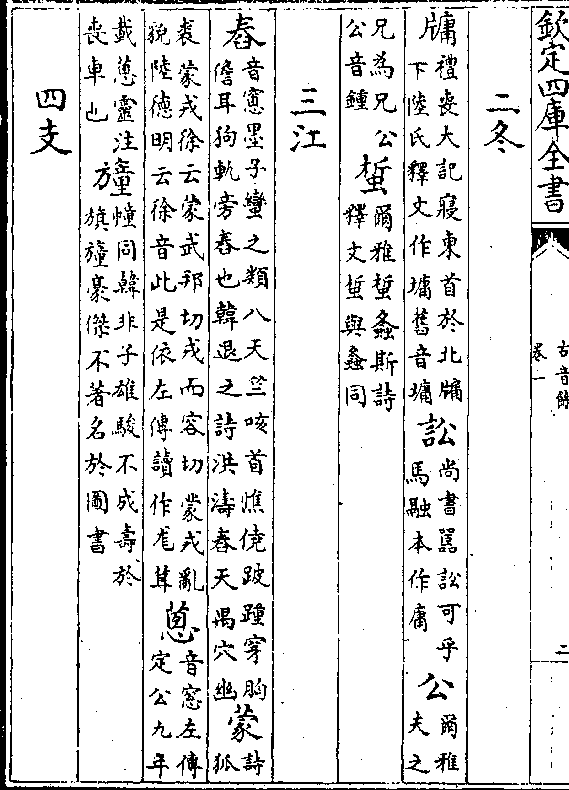 欽定四庫全書
古音餘
卷一
二
二冬
牗
禮喪大記寢東首於北牗
下陸氏釋文作墉舊音墉
訟
尚書嚚訟可乎
馬融本作庸
公
爾雅
夫之
兄為兄公
公音鍾
蜇
爾雅蜇螽斯詩
釋文蜇與螽同
三江
舂
音窻墨子蠻之類八天竺咳首憔僥跛踵穿胸
儋耳狗軌旁舂也韓退之詩洪濤舂天禹穴幽
蒙
詩
狐
裘蒙戎徐云蒙武邦切戎而容切蒙戎亂
貌陸德明云徐音此是依左傳讀作尨茸
蔥
音窓左傳
定公九年
載蔥靈注
喪車也
幢同韓非子雄駿不成壽於
旗豪傑不著名於圖書
四支